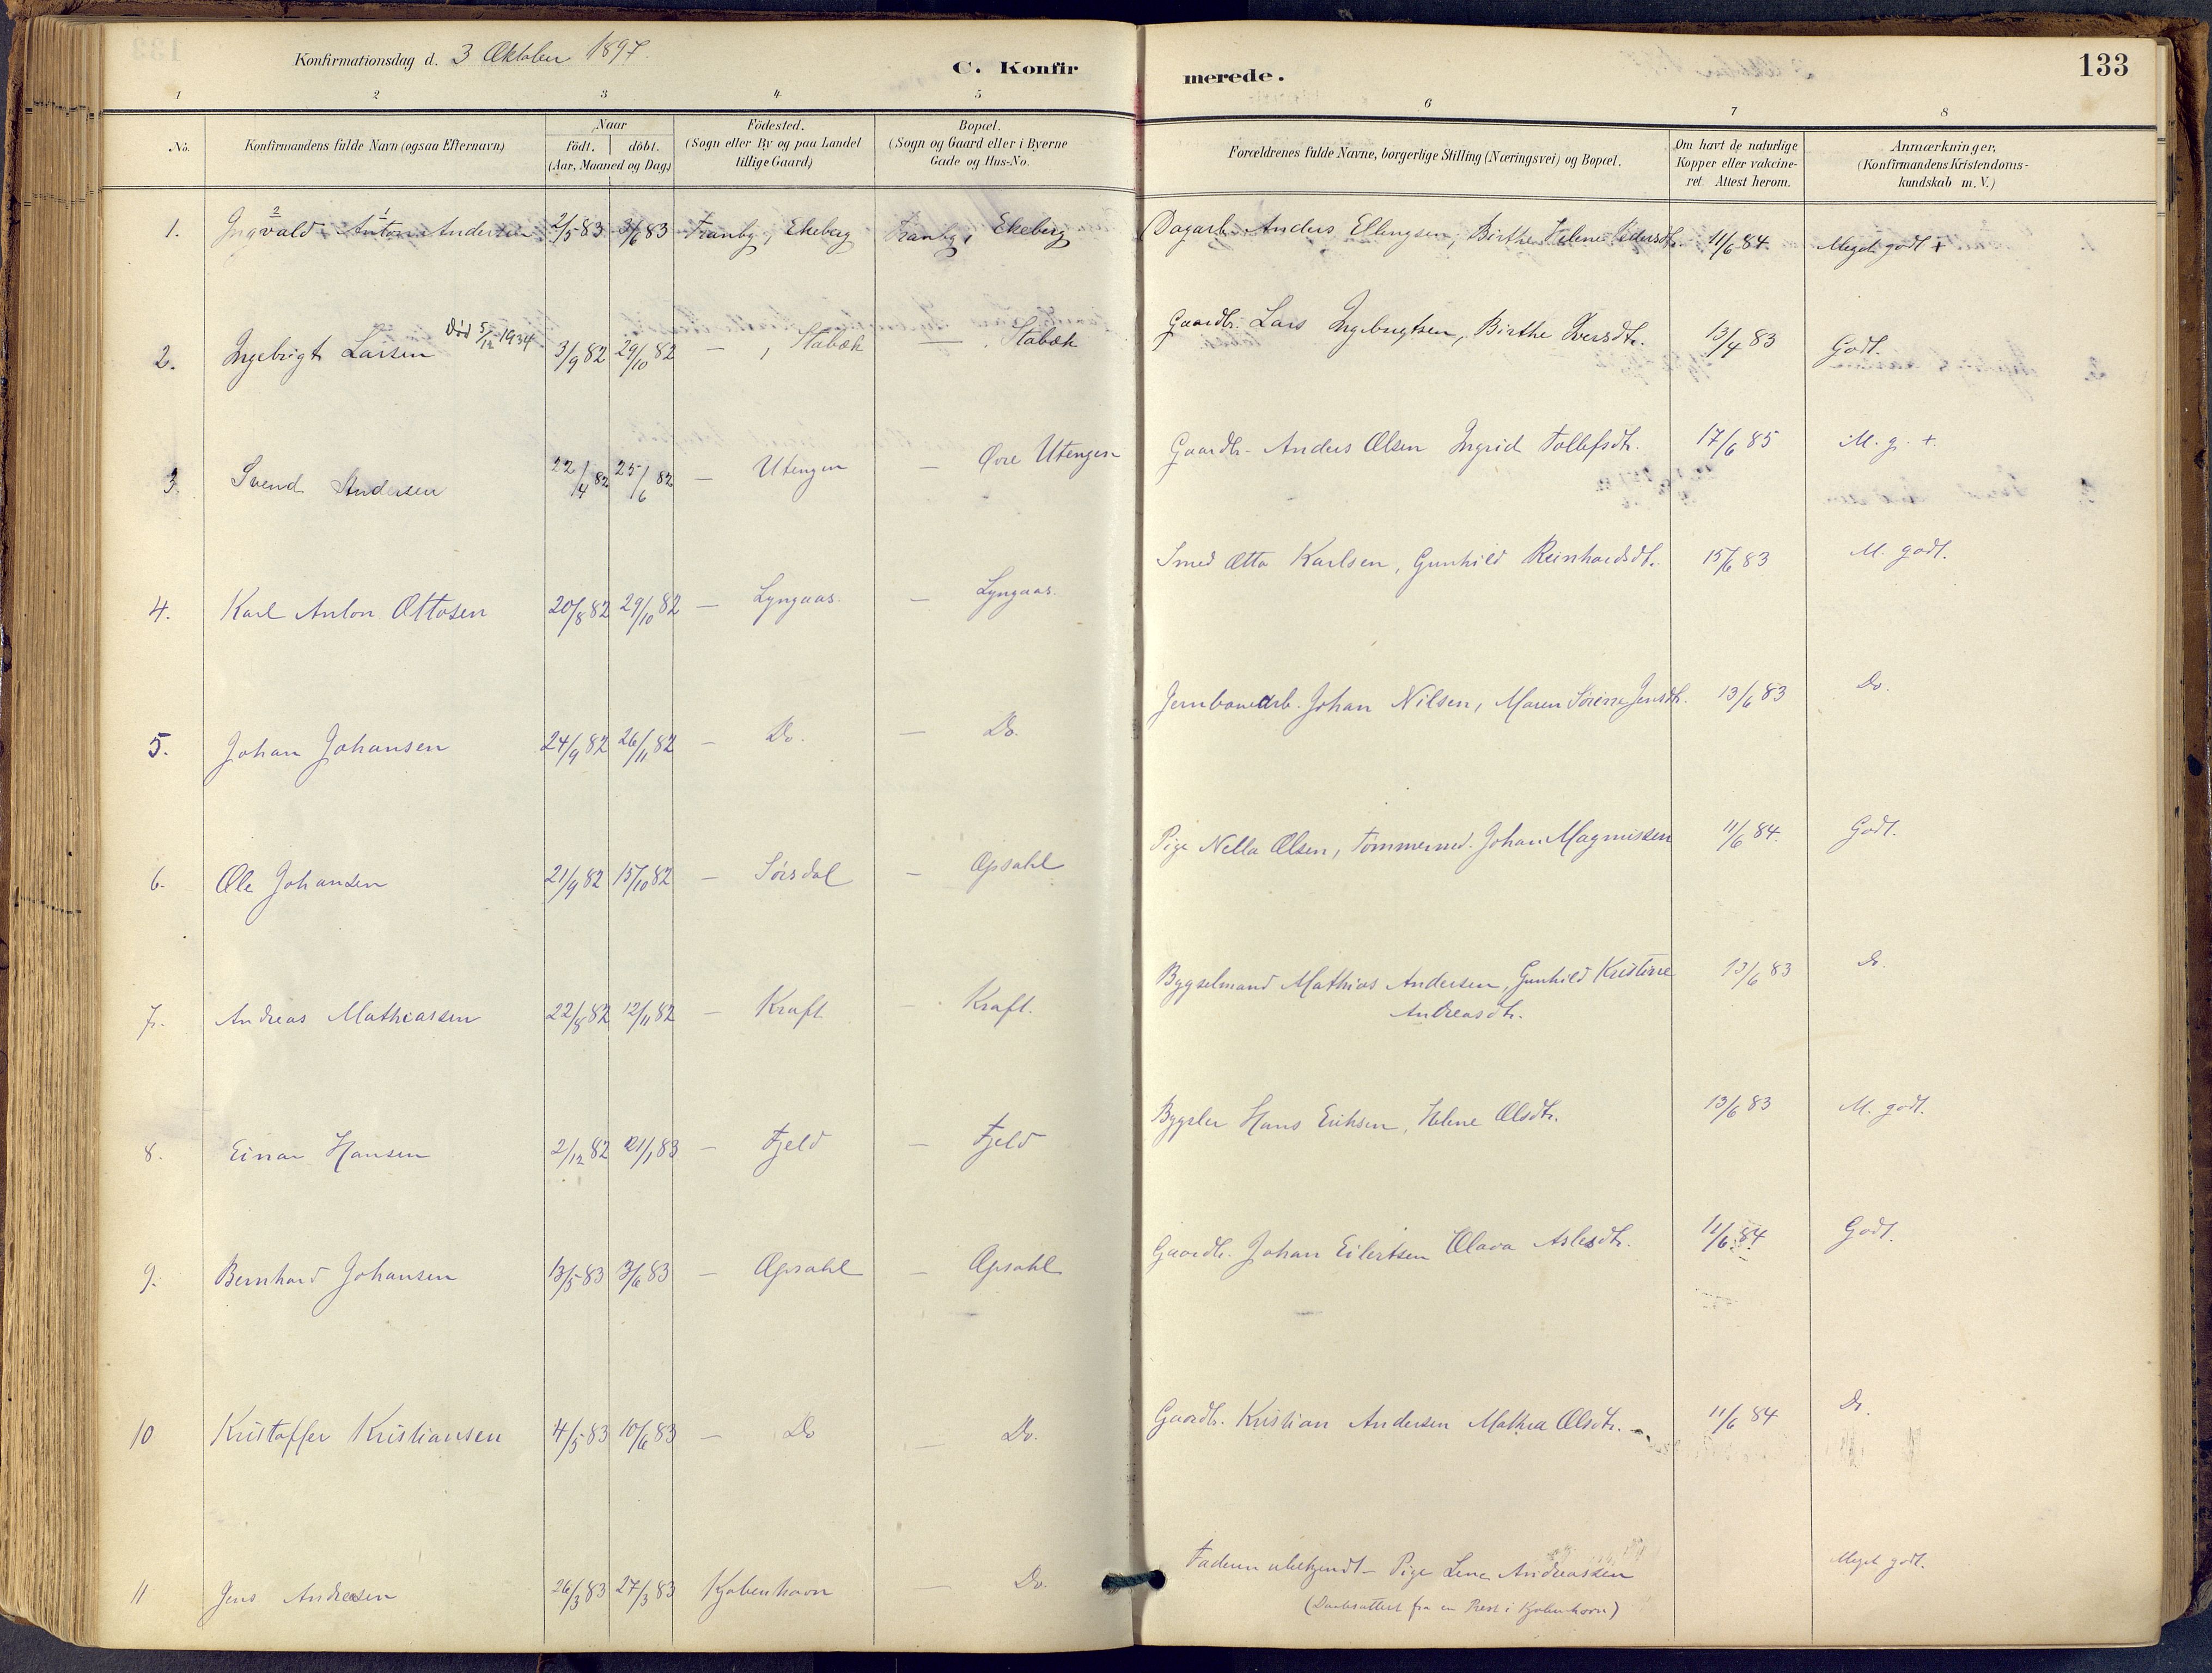 Konfirmationsdag d. 3 Oktober 1897.
C. Konfirmerede.
133
1 2 3 4 5 6 7 8
No.
Konfirmandens fulde Navn (ogsaa Efternavn)
Naar
födt. döbt.
(Aar, Maaned og Dag)
Födested.
(Sogn eller By og paa Landet
tillige Gaard)
Bopæl.
(Sogn og Gaard eller i Byerne
Gade og Hus-No.
Forældrenes fulde Navne, borgerlige Stilling (Næringsvei) og Bopæl.
Om havt de naturlige
Kopper eller vakcine-
ret. Attest herom.
Anmærkninger,
(Konfirmandens Kristendoms-
kundskab m. V.)
1. Ingvald Anton Andersen 2/5 83 3/6 83 Tranby, Ekeberg Tranby, Ekeberg Dagarb. Anders Ellingsen, Birthe Helene Pedersdtr. 11/6 84 Meget godt +
2 1
Død 5/12 1934
2. Ingebrigt Larsen 3/9 82 29/10 82 — , Stabæk — , Stabæk Gaardbr. Lars Ingebrigtsen, Birthe Iversdtr. 13/4 83 Godt.
3. Svend Andersen 22/4 82 25/6 82 — Utengen — Øvre Utengen Gaardbr. Anders Olsen Ingrid Tollefsdtr. 17/6 85 M. g. +.
4. Karl Anton Ottosen 20/8 82 29/10 82 — Lyngaas. — Lyngaas. Smed Otto Karlsen, Gunhild Reinhardsdt. 15/6 83 M. godt.
5. Johan Johansen 24/9 82 26/11 82 — Do. — Do. Jernbanearb. Johan Nilsen, Maren Sørine Jensdtr. 13/6 83 Do.
6. Ole Johansen 21/9 82 15/10 82 — Sørsdal — Opsahl Pige Nella Olsen, Tømmermd. Johan Magnussen 11/6 84. Godt.
7. Andreas Mathiassen 22/8 82 12/11 82 — Kraft — Kraft. Bygselmand Mathias Andersen, Gunhild Kristine 13/6 83 Do.
Andreasdtr.
8. Einar Hansen 2/12 82 21/1 83 — Fjeld — Fjeld Bygsler Hans Eriksen, Helene Olsdtr. 13/6 83 M. godt.
9. Bernhard Johansen 13/5 83 3/6 83 — Opsahl — Opsahl Gaardbr. Johan Eilertsen Olava Aslesdtr. 11/6 84 Godt.
10 Kristoffer Kristiansen 4/5 83 10/6 83 — Do — Do. Gaardbr. Kristian Andersen Mathea Olsdtr. 11/6 84 Do.
11 Jens Andresen 26/3 83 27/3 83 Kjøbenhavn — Do. Faderen ubekjendt – Pige Lene Andreassen Meget godt.
(Daabsattest fra en Prest i Kjøbenhavn)